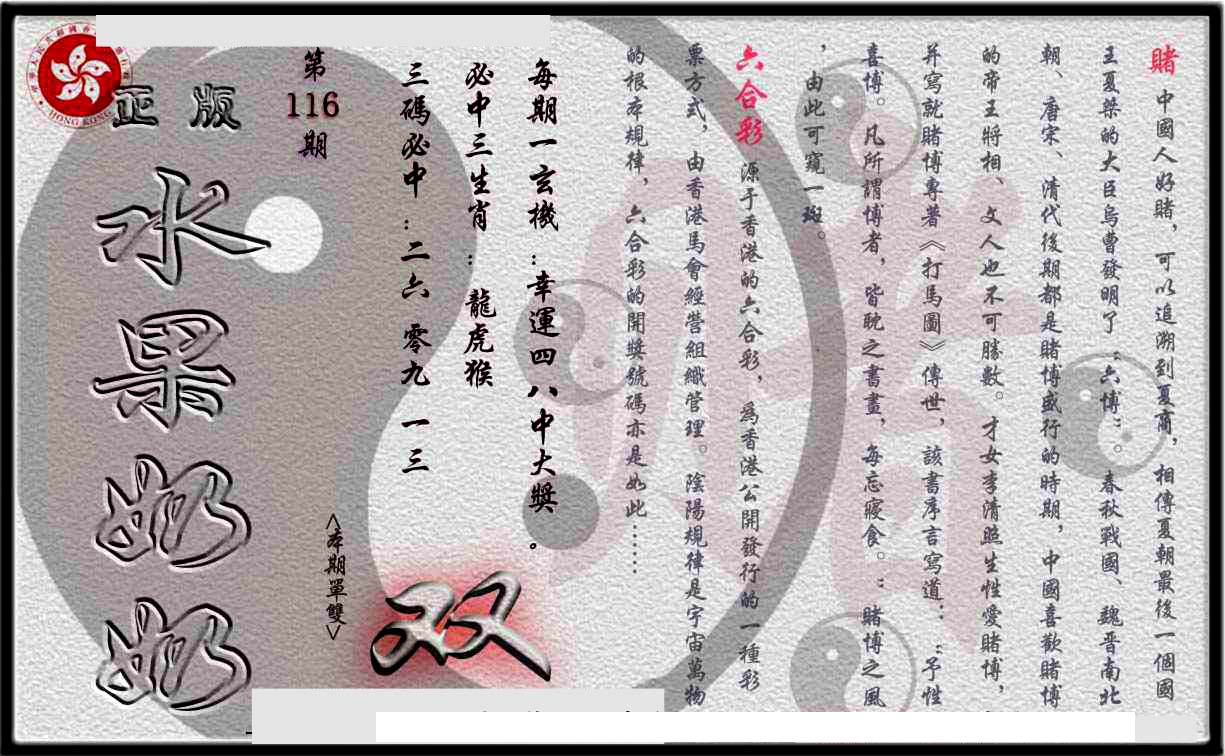 賭 中國人好賭，可以追溯到夏商，相傳夏朝最後一個國
王夏桀的大臣烏曹發明了“六博”。春秋戰國、魏晉南北
朝、唐宋、清代後期都是賭博盛行的時期，中國喜歡賭博
的帝王將相、文人也不可勝數。才女李清照生性愛賭博，
并寫就賭博專著《打馬圖》傳世，該書序言寫道：“予性
喜博。凡所謂博者，皆耽之書畫，每忘寢食。”賭博之風
，由此可窺一斑。
六合彩 源于香港的六合彩，為香港公開發行的一種彩
票方式，由香港馬會經營組織管理。陰陽規律是宇宙萬物
的根本規律，六合彩的開獎號碼亦是如此……
每期一玄機：幸運四八中大獎。
必中三生肖：龍虎猴
三碼必中：二六 零九 一三
<本期單雙>
双
第
116
期
正版
水果奶奶
HONG KONG